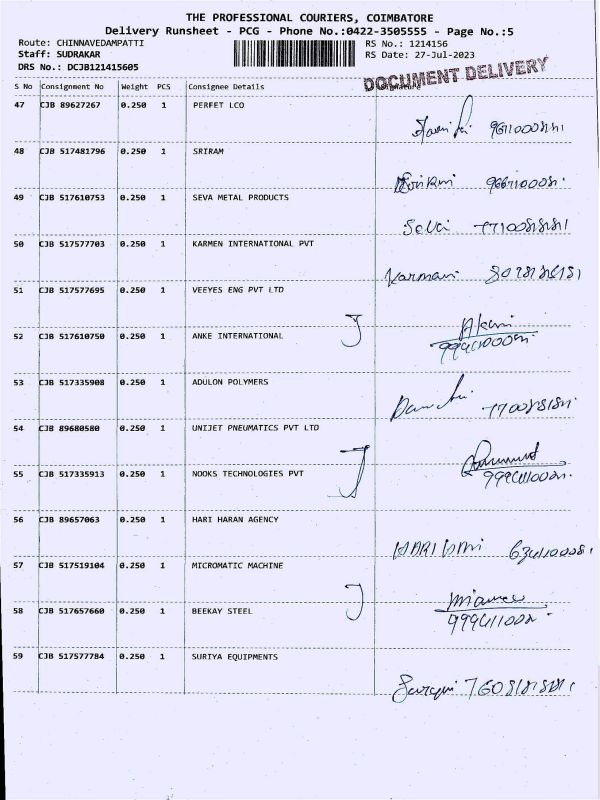 THE PROFESSIONAL COURIERS, COIMBATORE
Delivery Runsheet - PCG - Phone No.:0422-3505555 - Page No.:5
Route: CHINNAVEDAMPATTI RS No.: 1214156
Staff: SUDRAKAR RS Date: 27-Jul-2023
DRS No.: DCJB121415605
DOCUMENT DELIVERY
S No Consignment No Weight PCS Consignee Details
47 CJB 89627267 0.250 1 PERFET LCO
48 CJB 517481796 0.250 1 SRIRAM
49 CJB 517610753 0.250 1 SEVA METAL PRODUCTS
Selvi
50 CJB 517577703 0.250 1 KARMEN INTERNATIONAL PVT
51 CJB 517577695 0.250 1 VEEYES ENG PVT LTD
52 CJB 517610750 0.250 1 ANKE INTERNATIONAL
53 CJB 517335908 0.250 1 ADULON POLYMERS
54 CJB 89680580 0.250 1 UNIJET PNEUMATICS PVT LTD
55 CJB 517335913 0.250 1 NOOKS TECHNOLOGIES PVT
56 CJB 89657063 0.250 1 HARI HARAN AGENCY
57 CJB 517519104 0.250 1 MICROMATIC MACHINE
58 CJB 517657660 0.250 1 BEEKAY STEEL
59 CJB 517577784 0.250 1 SURIYA EQUIPMENTS